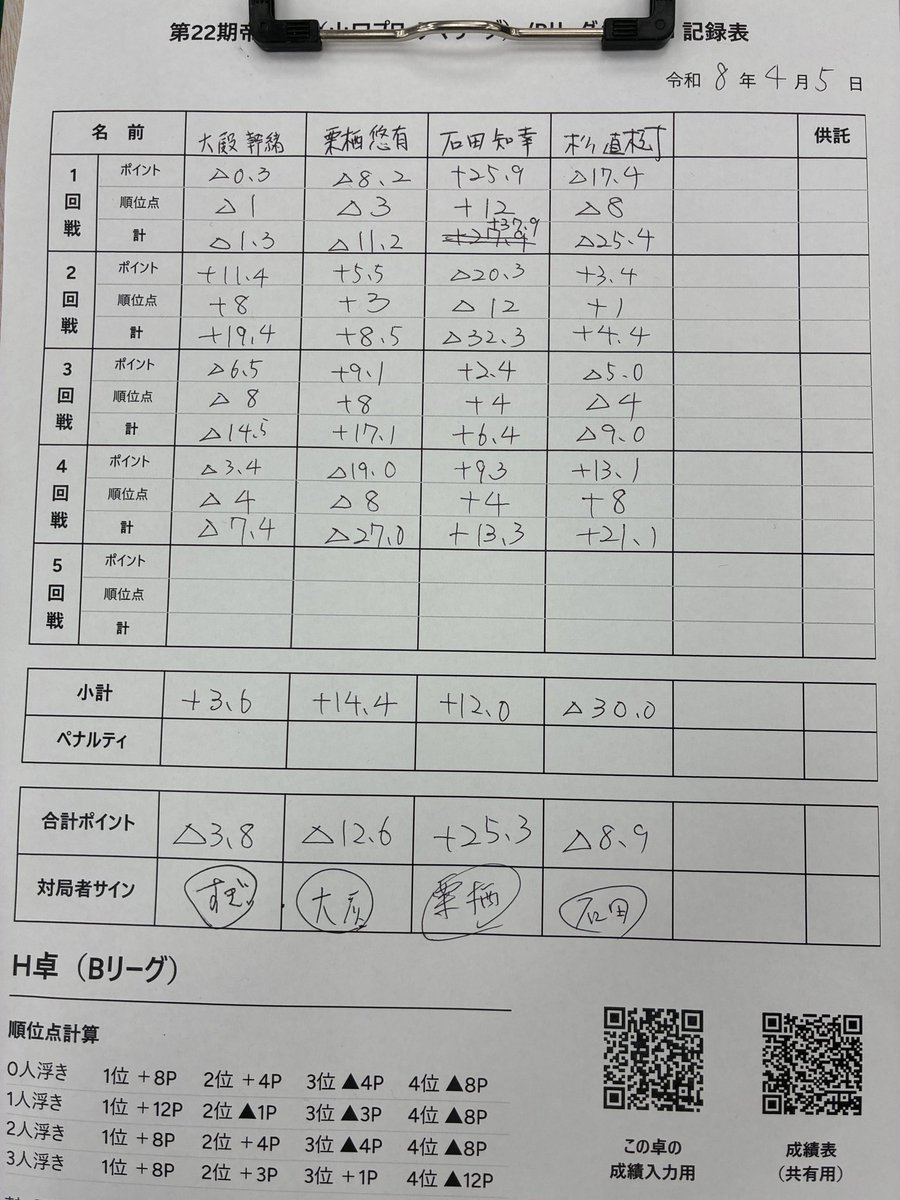 第22期帝 記録表
令和 8 年 4 月 5 日
名 前 大殿 幹緒 栗栖 悠有 石田 知幸 杉 直樹 供託
1回戦 ポイント △0.3 △8.2 +25.9 △17.4
順位点 △1 △3 +12 △8
計 △1.3 △11.2 +37.9 △25.4
2回戦 ポイント +11.4 +5.5 △20.3 +3.4
順位点 +8 +3 △12 +1
計 +19.4 +8.5 △32.3 +4.4
3回戦 ポイント △6.5 +9.1 +2.4 △5.0
順位点 △8 +8 +4 △4
計 △14.5 +17.1 +6.4 △9.0
4回戦 ポイント △3.4 △19.0 +9.3 +13.1
順位点 △4 △8 +4 +8
計 △7.4 △27.0 +13.3 +21.1
5回戦 ポイント
順位点
計
小計 +3.6 +14.4 +12.0 △30.0
ペナルティ
合計ポイント △3.8 △12.6 +25.3 △8.9
対局者サイン すぎ 大殿 栗栖 石田
H卓（Bリーグ）
順位点計算
0人浮き 1位 +8P 2位 +4P 3位 ▲4P 4位 ▲8P
1人浮き 1位 +12P 2位 ▲1P 3位 ▲3P 4位 ▲8P
2人浮き 1位 +8P 2位 +4P 3位 ▲4P 4位 ▲8P
3人浮き 1位 +8P 2位 +3P 3位 +1P 4位 ▲12P
この卓の
成績入力用
成績表
（共有用）